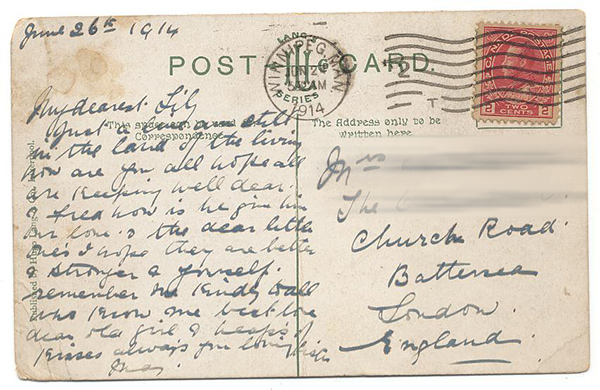 June 26th 1914
POST CARD.
LANG'S
SERIES
WINNIPEG, MAN
JUN 2
AM
1914
2
T
CANADA POSTAGE
2 TWO CENTS 2
This space
Correspondence
The Address only to be
written here
My dearest Lily
Just a still
in the land of the living
how are you all hope all
are keeping well dear
& fred how is he give him
our love & the dear little
one's I hope they are better
& stronger & yourself.
remember me kindly to all
who know me best love
dear old girl & heaps of
kisses always your loving
Mrs
The
Church Road.
Battersea
London.
England